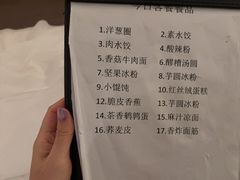 今日客餐餐品
1.洋葱圈 2.素水饺
3.肉水饺 4.酸辣粉
5.香菇牛肉面 6.醪糟汤圆
7.坚果冰粉 8.芋圆冰粉
9.小馄饨 10.红丝绒蛋糕
12.脆皮香蕉 13.芋圆冰粉
14.茶香鹌鹑蛋 15.麻汁凉面
16.荞麦皮 17.香炸面筋